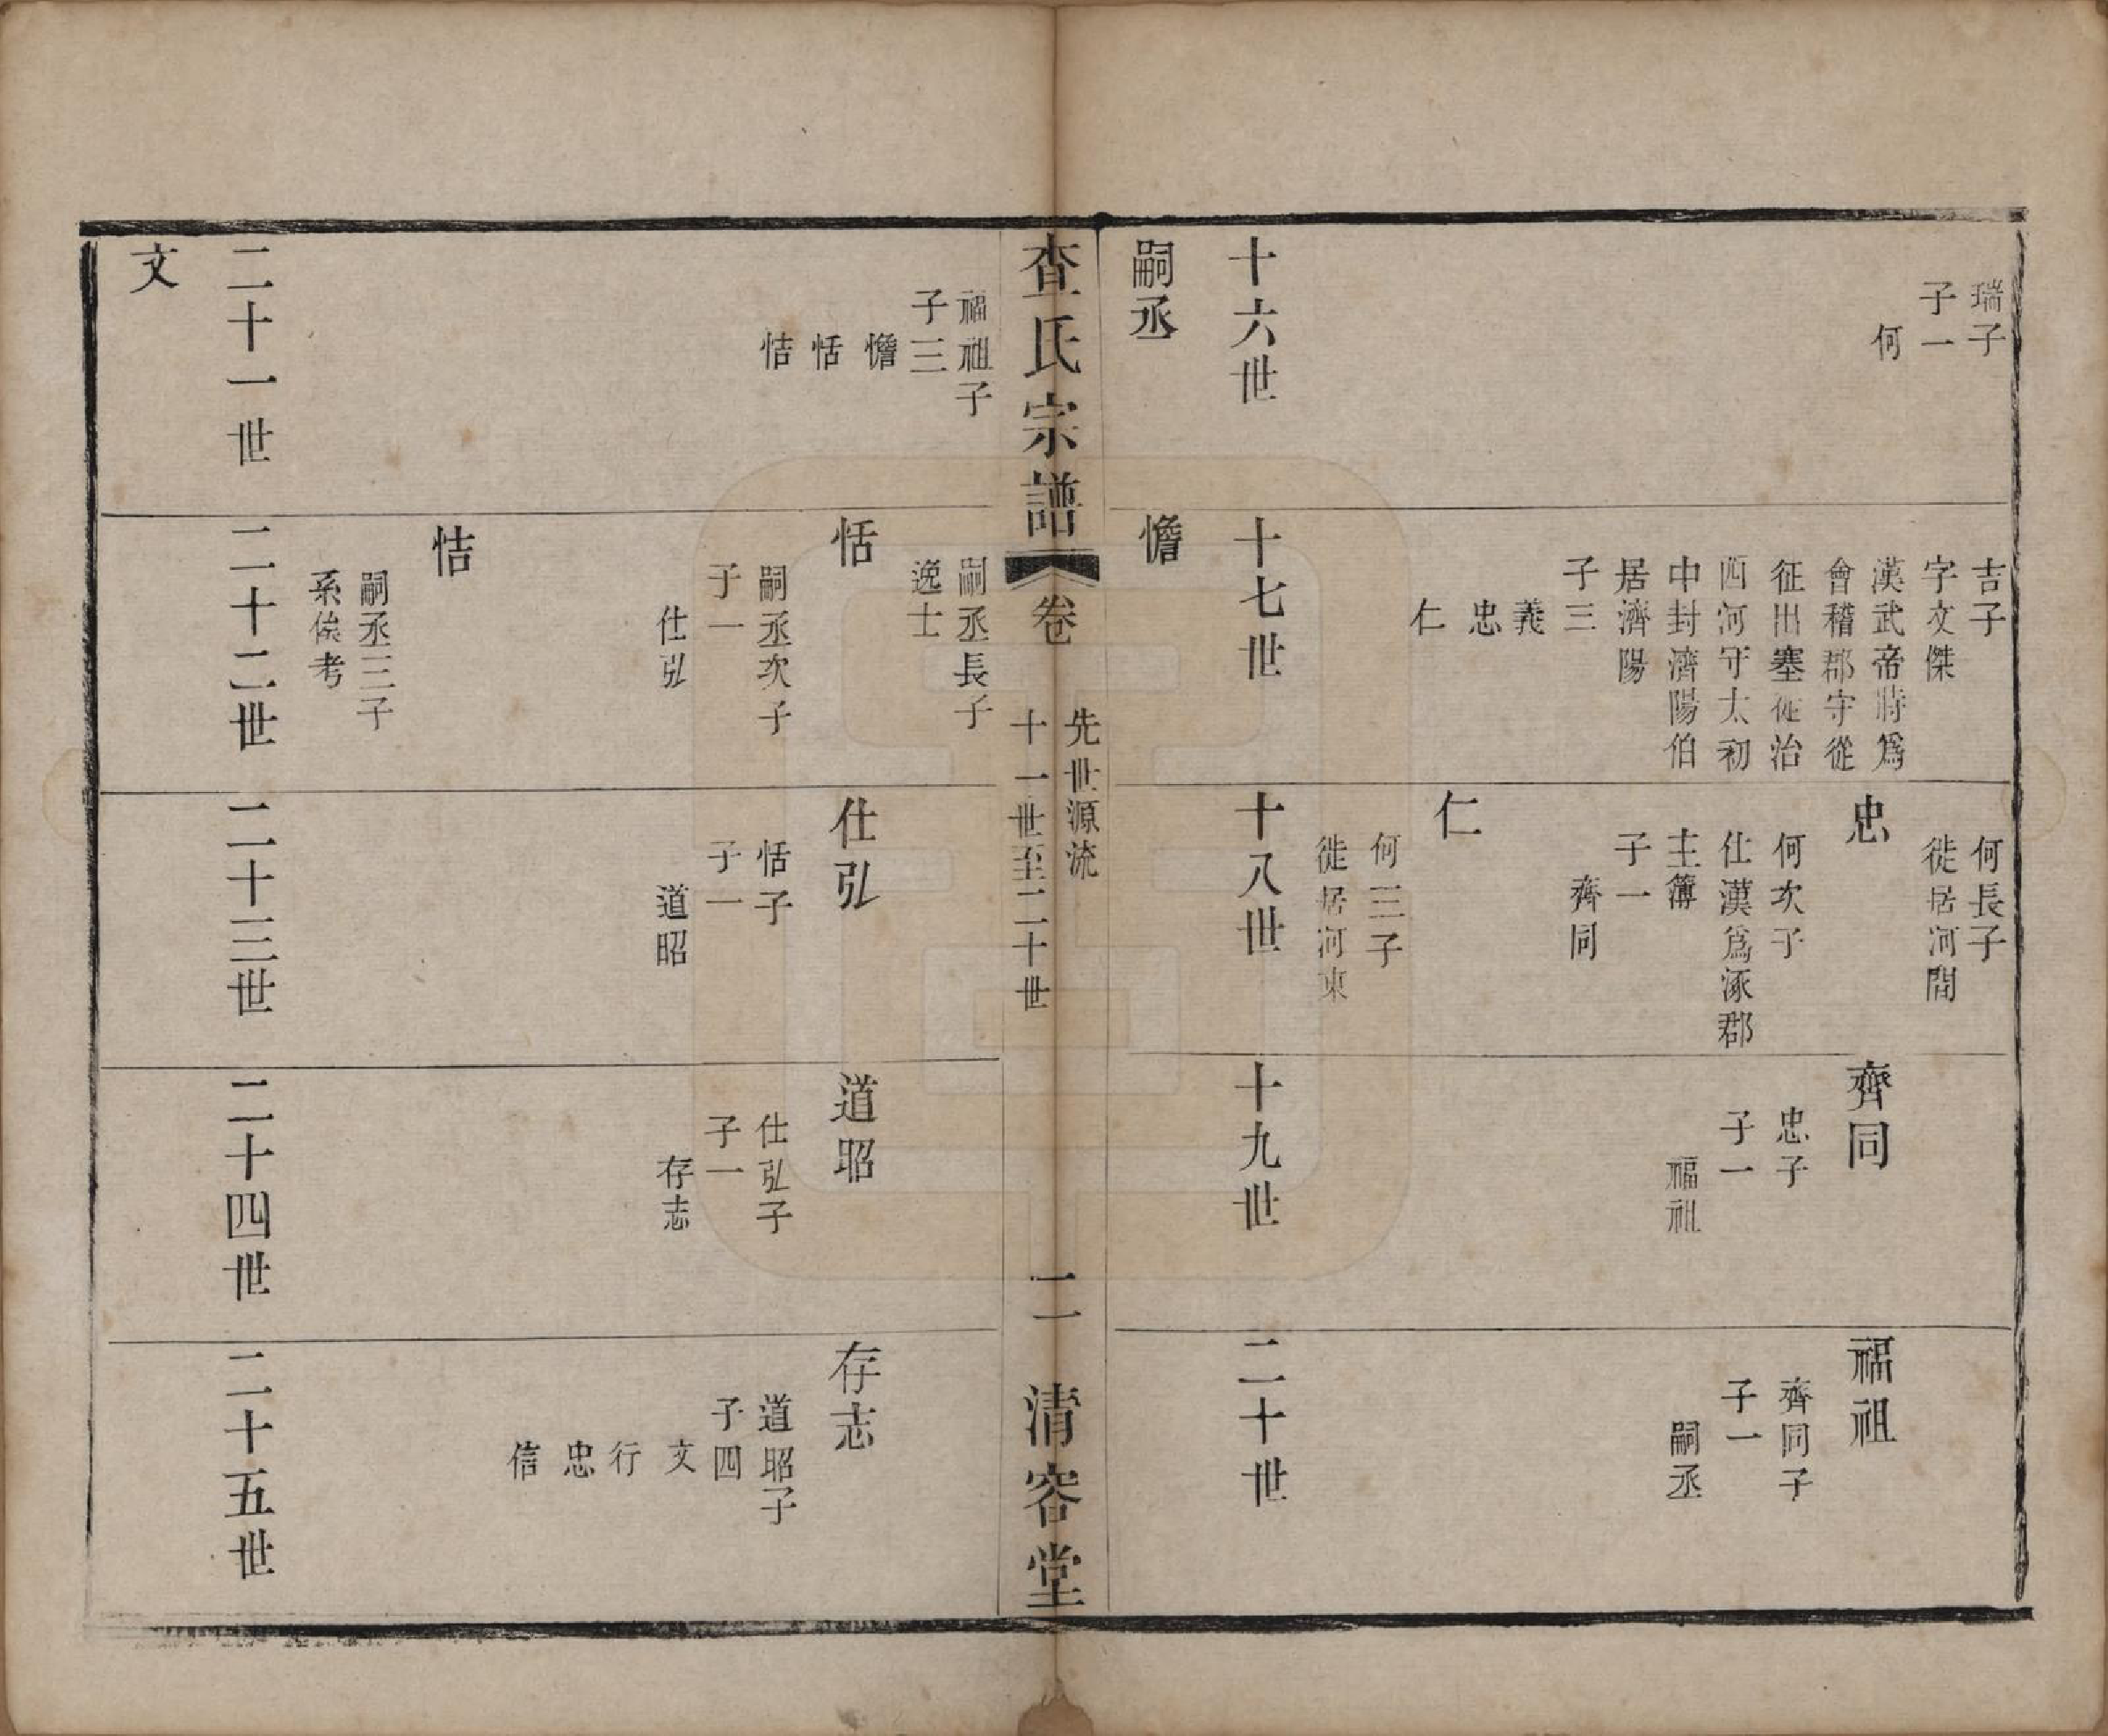 瑞子
子一
何
吉子
字文傑
漢武帝時爲
會稽郡守從
征出塞徙治
西河守太初
中封濟陽伯
居濟陽
子三
義
忠
仁
何長子
徙居河間
忠
何次子
仕漢爲涿郡
主簿
子一
齊同
仁
何三子
徙居河東
齊同
忠子
子一
福祖
福祖
齊同子
子一
嗣丞
十六世
十七世
十八世
十九世
二十世
嗣丞
憺
查氏宗譜
卷
先世源流
十一世至二十世
二
清容堂
福祖子
子三
憺
恬
恄
嗣丞長子
逸士
恬
嗣丞次子
子一
仕弘
恄
嗣丞三子
系俟考
仕弘
恬子
子一
道昭
道昭
仕弘子
子一
存志
存志
道昭子
子四
文
行
忠
信
二十一世
二十二世
二十三世
二十四世
二十五世
文